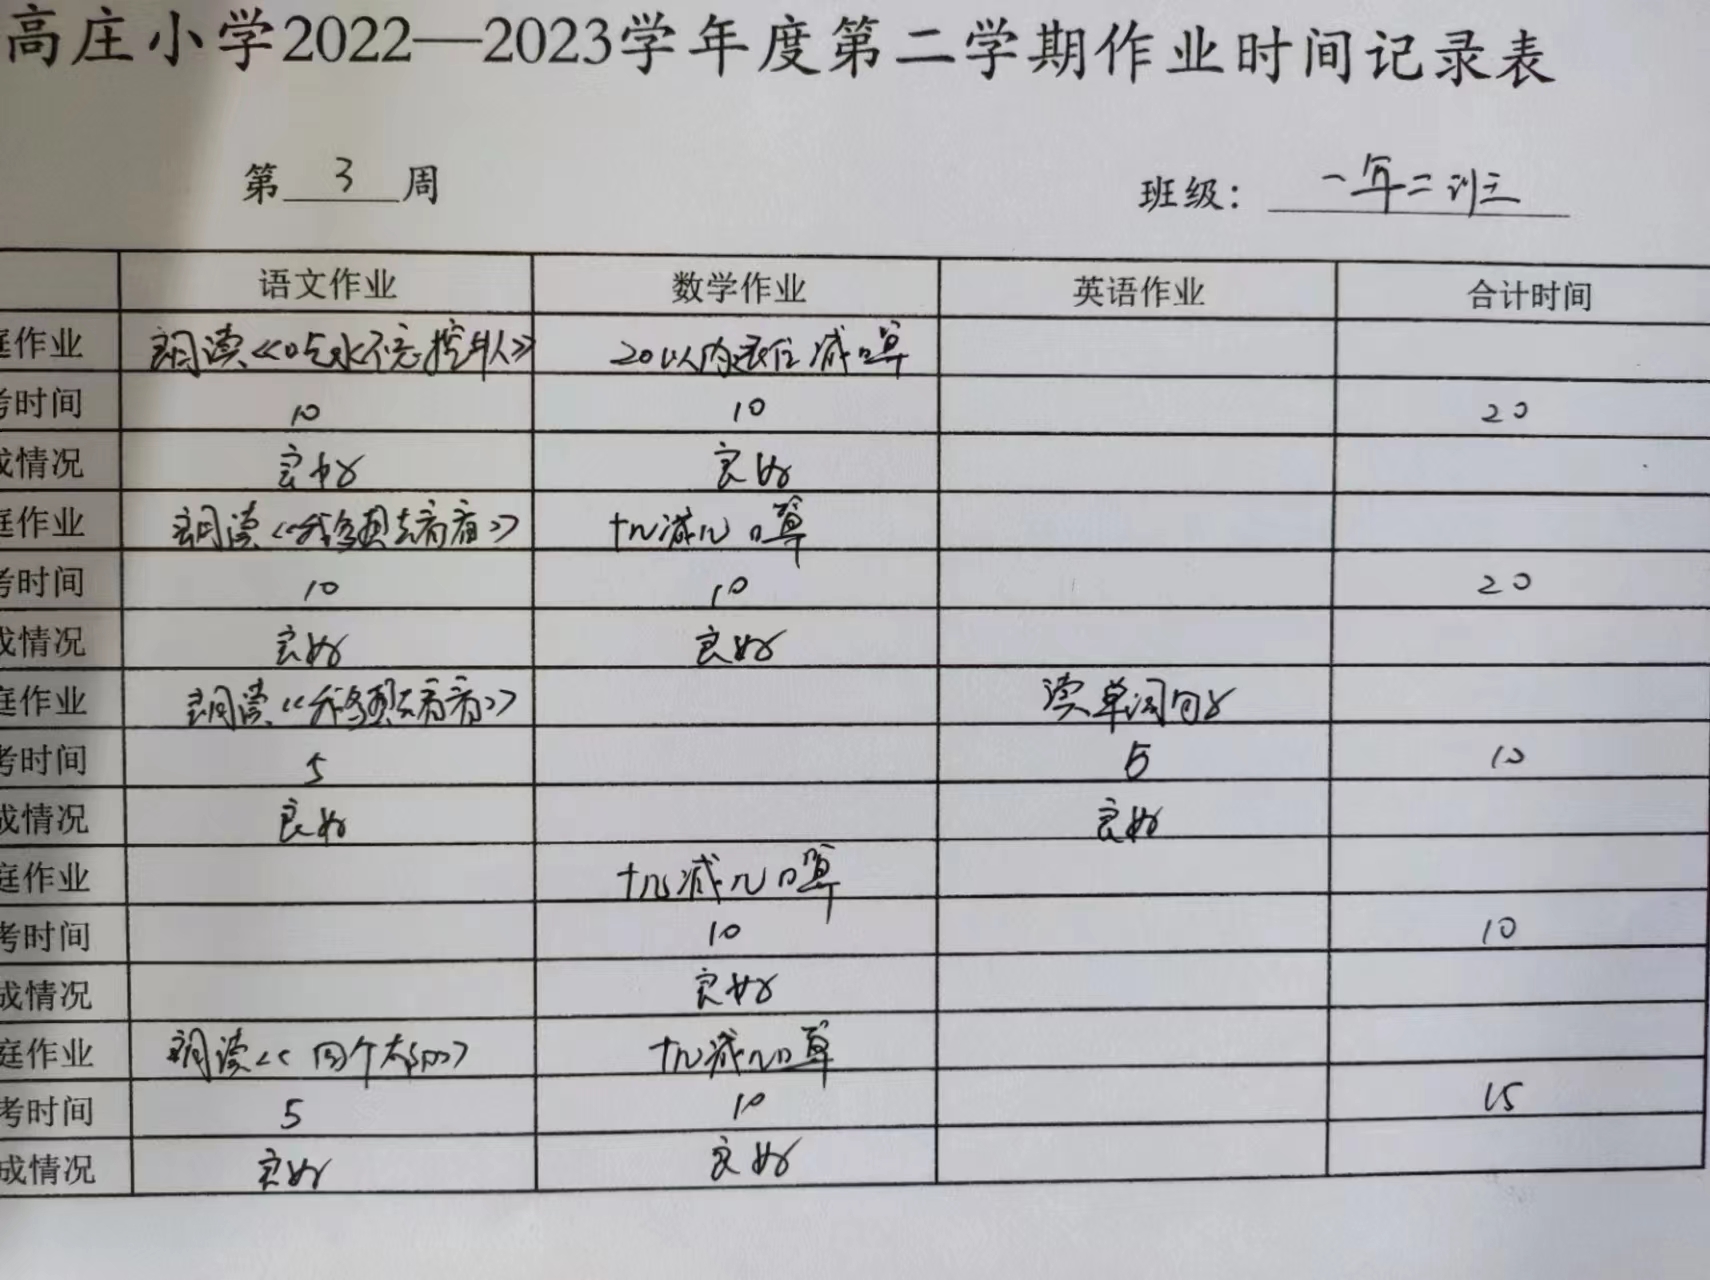 高庄小学2022—2023学年度第二学期作业时间记录表
第 3 周 班级: 一年二班
语文作业 数学作业 英语作业 合计时间
庭作业 朗读《吃水不忘挖井人》 20以内退位减口算
考时间 10 10 20
成情况 良好 良好
庭作业 朗读《我多想去看看》 十几减几口算
考时间 10 10 20
成情况 良好 良好
庭作业 朗读《我多想去看看》 读单词句子
考时间 5 5 10
成情况 良好 良好
庭作业 十几减几口算
考时间 10 10
成情况 良好
庭作业 朗读《四个太阳》 十几减几口算
考时间 5 10 15
成情况 良好 良好